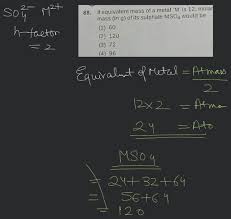 SO₄²⁻ M²⁺
n-factor
= 2
88. If equivalent mass of a metal 'M' is 12, molar
mass (in g) of its sulphate MSO₄ would be
(1) 60
(2) 120
(3) 72
(4) 96
Equivalent of Metal = At mass
2
12×2 = Atma
24 = Ato
MSO4
= 24+32+64
= 56+64
= 120